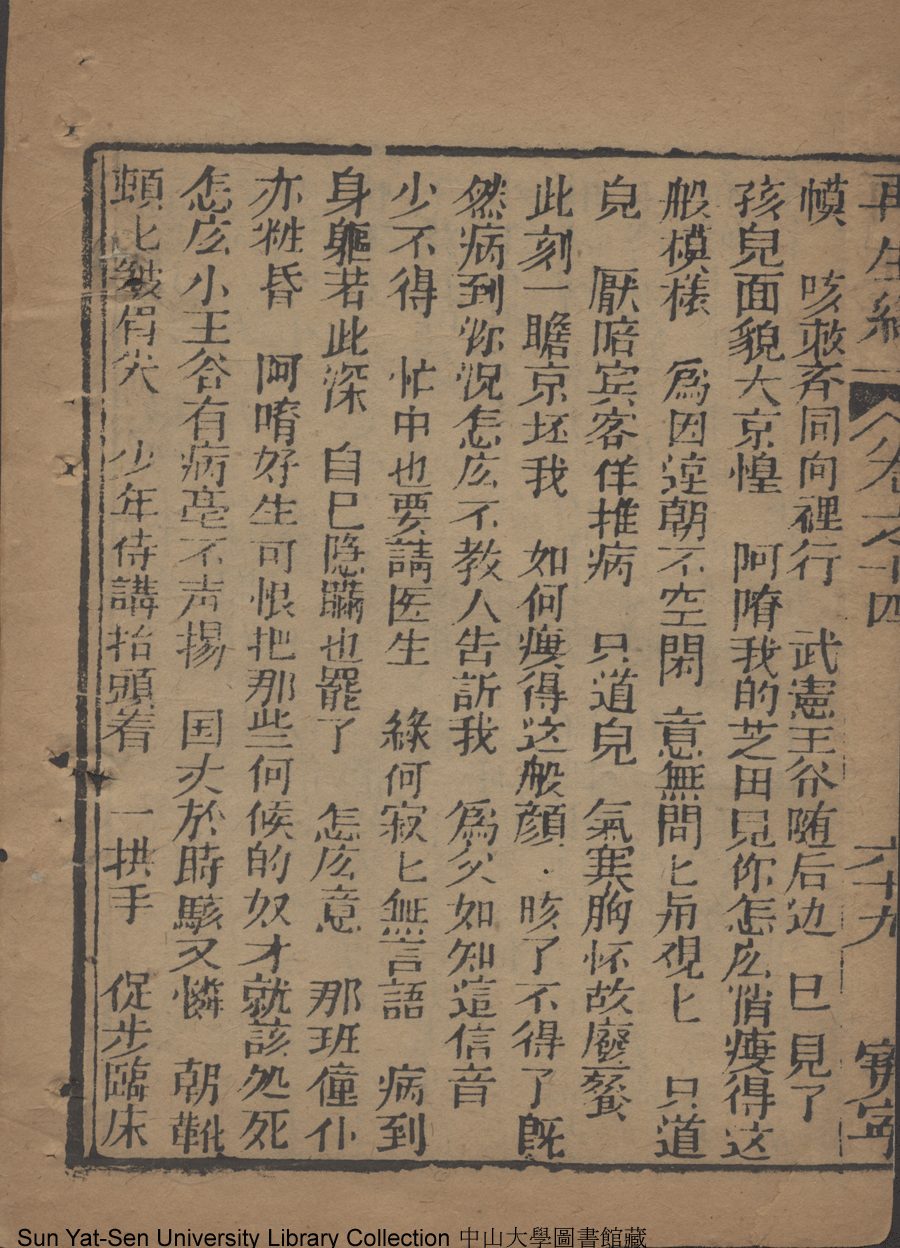 再生緣 卷之十四 六十九 寧
幙 咳敕斉同向裡行 武憲王谷随后边 巳見了
孩兒面貌大京惶 阿唷我的芝田見你怎庅悄瘦得这
般模樣 為因這朝不空閑 意無問匕甪視匕 只道
皃 厭陪宾客佯推病 只道皃 氣塞胸怀故廢餐
此刻一瞻京坯我 如何瘦得这般顔．咳了不得了既
然病到你况怎庅不教人告訢我 為父如知這信音
少不得 忙中也要請医生 緣何寂匕無言語 病到
身軀若此深 自巳隐瞞也罷了 怎庅意 那班僮仆
亦粧昏 阿唷好生可恨把那些伺候的奴才就該処死
怎庅小王谷有病毫不声揚 国丈於時駭又憐 朝靴
頓匕皺眉尖 少年侍講抬頭着 一拱手 促步臨床
Sun Yat-Sen University Library Collection 中山大學圖書館藏